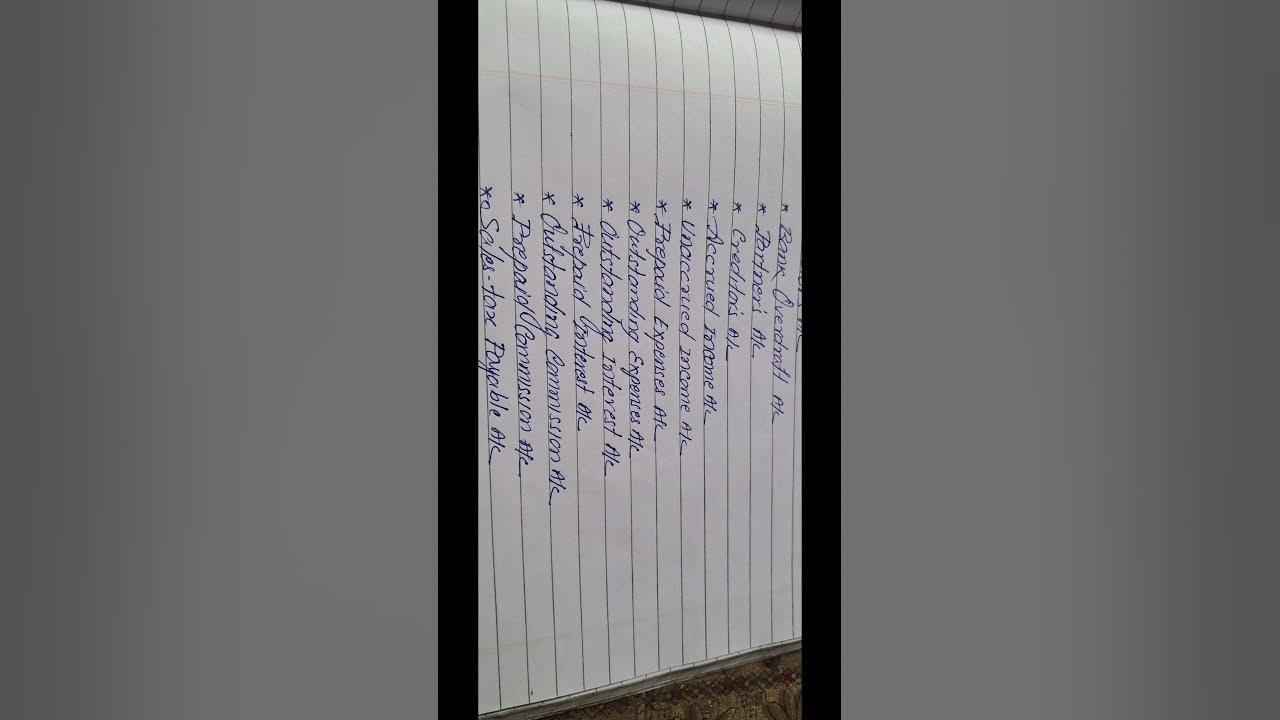 * Bank Overdraft A/c
* Partner's A/c
* Creditor's A/c
* Accrued Income A/c
* Unaccrued Income A/c
* Prepaid Expenses A/c
* Outstanding Expenses A/c
* Outstanding Interest A/c
* Prepaid Interest A/c
* Outstanding Commission A/c
* Prepaid Commission A/c
* Sales-tax Payable A/c